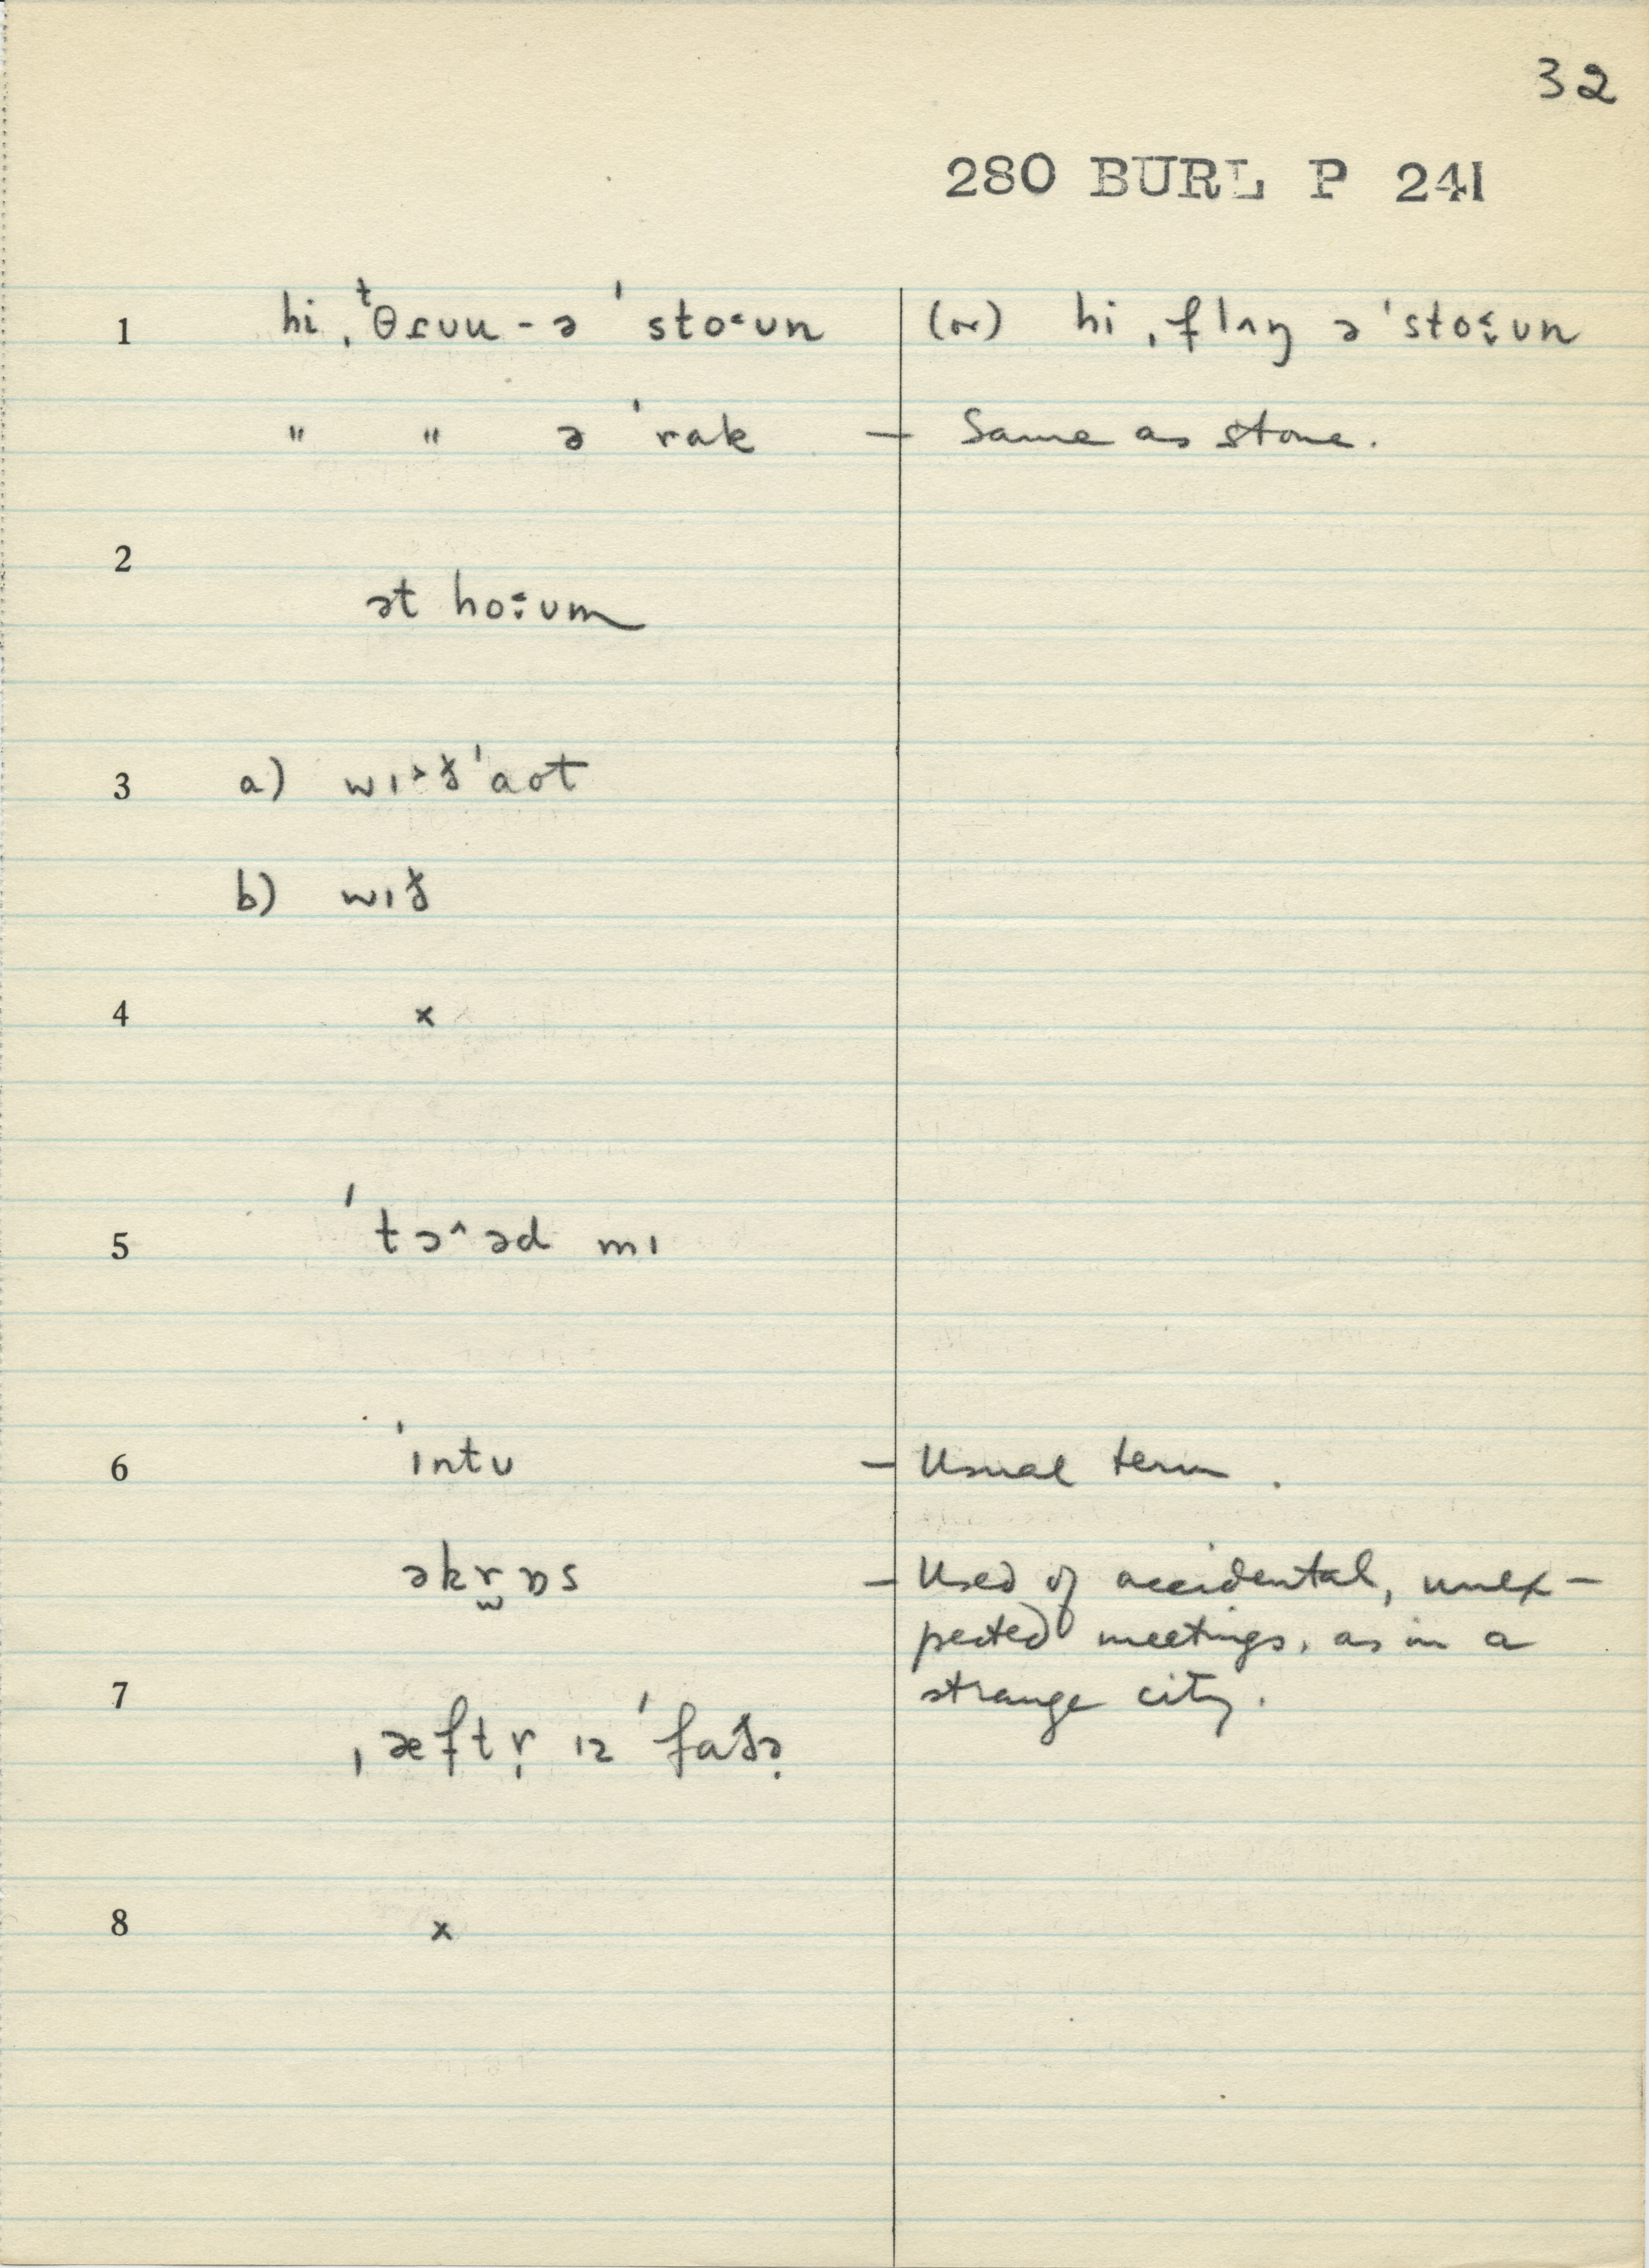 32
280 BURL P 241
1 hi ˌᵗθɾʊu - ə ˈstoˑʊn (or) hi ˌflʌŋ ə ˈstoːʊn
" " ə ˈrak — Same as stone.
2
ət hoːʊm
3 a) wɪ˃ðˈaʊt
b) wɪð
4 x
5 ˈtə^əd mɪ
6 ˈɪntʊ — Usual term.
əkr̫ɒs — Used of accidental, unex-
pected meetings, as in a
7 strange city.
ˌæftr̩ ɪz ˈfaðə̣
8 x